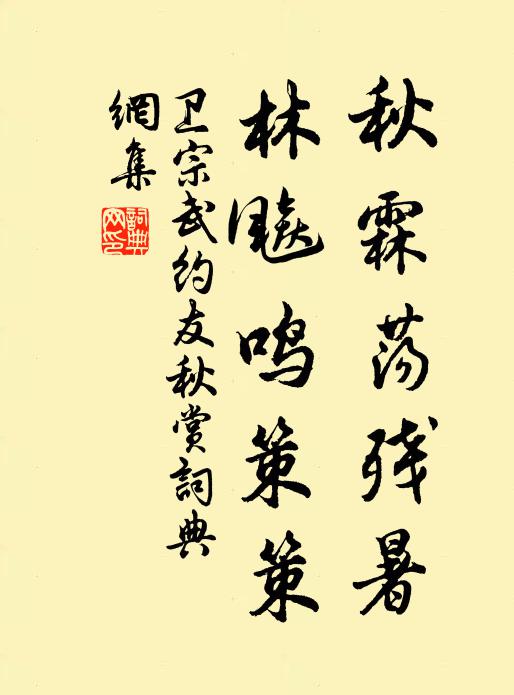 秋霖荡残暑
林飙鸣策策
卫宗武约友秋赏詞典
網集
詞典
网印